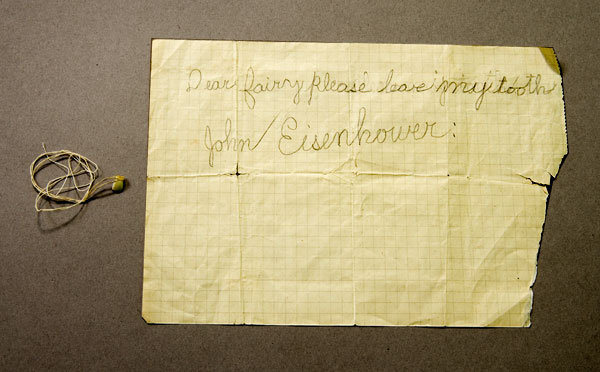 Dear fairy please leave my tooth
John Eisenhower.